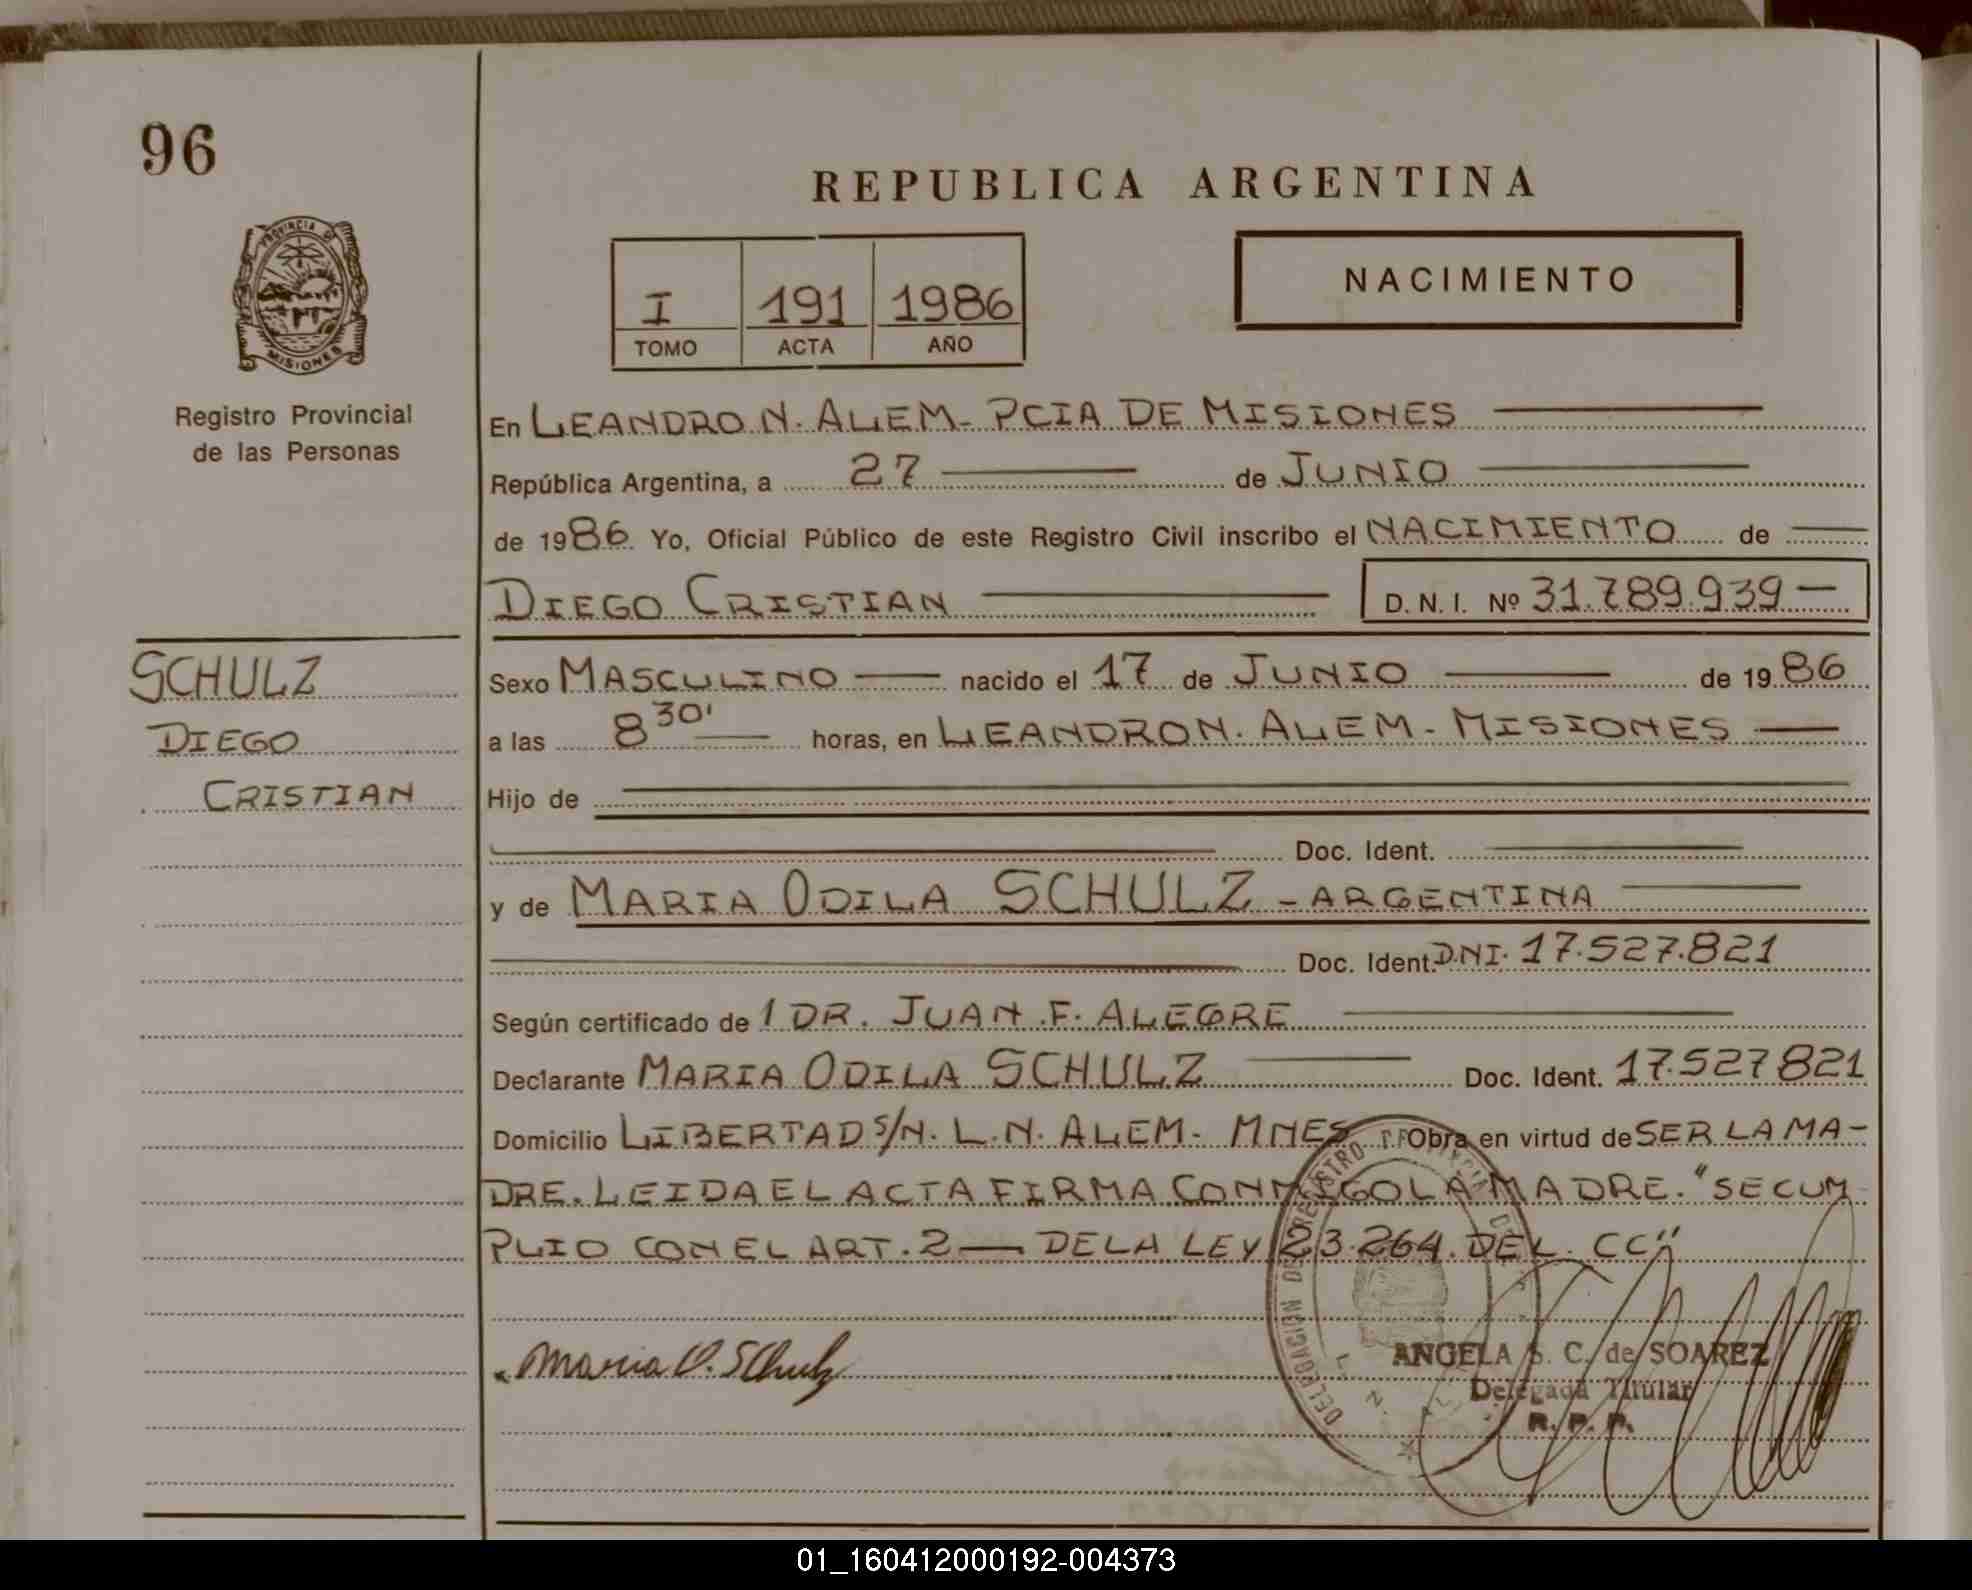 96
REPUBLICA ARGENTINA
PROVINCIA DE
MISIONES
Registro Provincial
de las Personas
I 191 1986
TOMO ACTA AÑO
NACIMIENTO
En LEANDRO N. ALEM - PCIA DE MISIONES
República Argentina, a 27 de JUNIO
de 1986 Yo, Oficial Público de este Registro Civil inscribo el NACIMIENTO de
DIEGO CRISTIAN D. N. I. Nº 31.789.939 —
SCHULZ
DIEGO
CRISTIAN
Sexo MASCULINO — nacido el 17 de JUNIO — de 1986
a las 8 30' — horas, en LEANDRO N. ALEM - MISIONES —
Hijo de
Doc. Ident.
y de MARIA ODILA SCHULZ - ARGENTINA
Doc. Ident. D.N.I. 17.527.821
Según certificado de 1 DR. JUAN F. ALEGRE
Declarante MARIA ODILA SCHULZ Doc. Ident. 17.527821
Domicilio LIBERTAD S/N. L. N. ALEM - MNES Obra en virtud de SER LA MA-
DRE. LEIDA EL ACTA FIRMA CONMIGO LA MADRE. "SE CUM
PLIO CON EL ART. 2 — DE LA LEY 23.264. DEL CC"
Maria O. Schulz
DELEGACION DE REGISTRO
L. N. ALEM
ANGELA S. C. de SOAREZ
Delegada Titular
R. P. P.
01_160412000192-004373